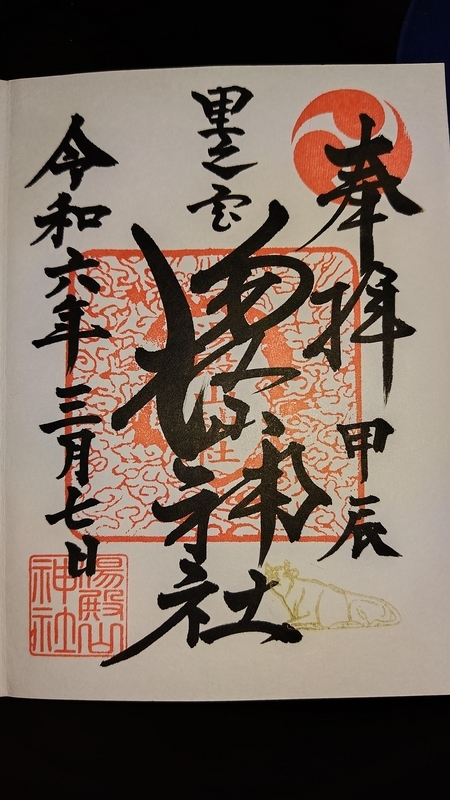 奉拝
甲辰
里之宮
湯殿山神社
令和六年三月七日
湯殿山
神社